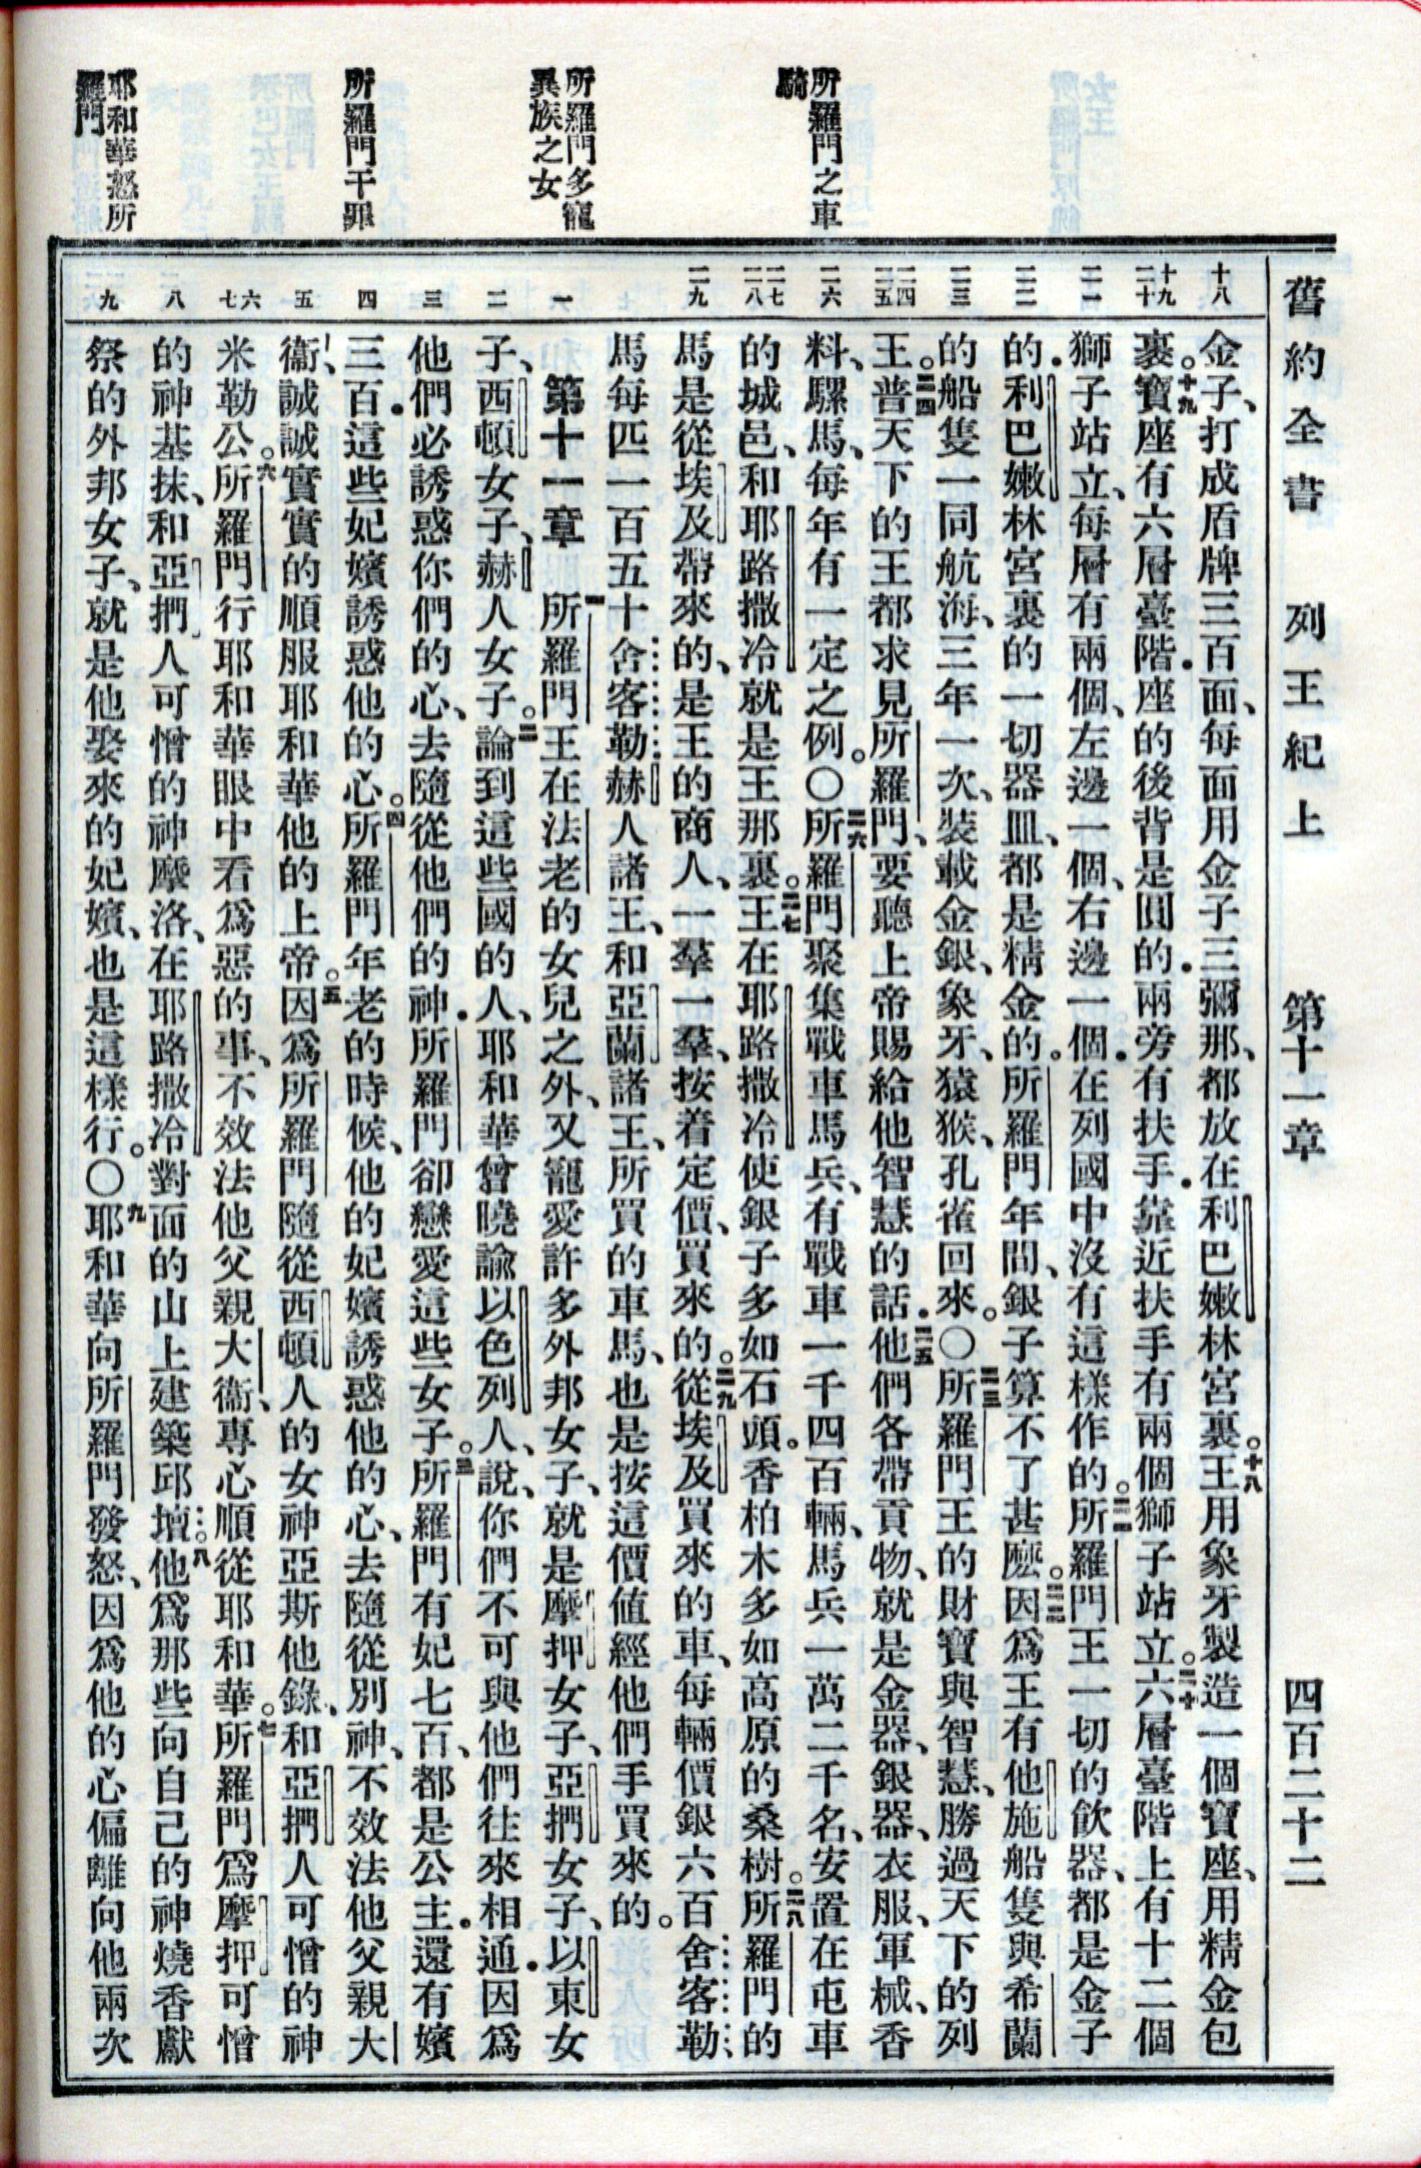 舊約全書 列王紀上 第十一章 四百二十二
所羅門之車
騎
所羅門多寵
異族之女
所羅門干罪
耶和華怒所
羅門
十八
十九
二十
二一
二二
二三
二四
二五
二六
二七
二八
二九
一
二
三
四
五
六
七
八
九
金子、打成盾牌三百面、每面用金子三彌那、都放在利巴嫩林宮裏。十八王用象牙製造一個寶座、用精金包
裏。十九寶座有六層臺階．座的後背是圓的．兩旁有扶手．靠近扶手有兩個獅子站立。二十六層臺階上有十二個
獅子站立、每層有兩個、左邊一個、右邊一個．在列國中沒有這樣作的。二一所羅門王一切的飲器、都是金子
的．利巴嫩林宮裏的一切器皿、都是精金的。所羅門年間、銀子算不了甚麼。二二因爲王有他施船隻與希蘭
的船隻一同航海、三年一次、裝載金銀、象牙、猿猴、孔雀回來。〇二三所羅門王的財寶與智慧、勝過天下的列
王。二四普天下的王都求見所羅門、要聽上帝賜給他智慧的話．二五他們各帶貢物、就是金器、銀器、衣服、軍械、香
料、騾馬、每年有一定之例。〇二六所羅門聚集戰車馬兵、有戰車一千四百輛、馬兵一萬二千名、安置在屯車
的城邑、和耶路撒冷、就是王那裏。二七王在耶路撒冷使銀子多如石頭。香柏木多如高原的桑樹。二八所羅門的
馬是從埃及帶來的、是王的商人、一羣一羣、按着定價、買來的。二九從埃及買來的車、每輛價銀六百舍客勒、
馬每匹一百五十舍客勒、赫人諸王、和亞蘭諸王、所買的車馬、也是按這價值經他們手買來的。
第十一章 一所羅門王在法老的女兒之外、又寵愛許多外邦女子、就是摩押女子、亞捫女子、以東女
子、西頓女子、赫人女子。二論到這些國的人、耶和華曾曉諭以色列人、說、你們不可與他們往來相通．因爲
他們必誘惑你們的心、去隨從他們的神．所羅門卻戀愛這些女子。三所羅門有妃七百、都是公主．還有嬪
三百．這些妃嬪誘惑他的心。四所羅門年老的時候、他的妃嬪誘惑他的心、去隨從別神、不效法他父親大
衞、誠誠實實的順服耶和華他的上帝。五因爲所羅門隨從西頓人的女神亞斯他錄、和亞捫人可憎的神
米勒公。六所羅門行耶和華眼中看爲惡的事、不效法他父親大衞、專心順從耶和華。七所羅門爲摩押可憎
的神基抹、和亞捫人可憎的神摩洛、在耶路撒冷對面的山上建築邱壇。八他爲那些向自己的神燒香獻
祭的外邦女子、就是他娶來的妃嬪、也是這樣行。〇九耶和華向所羅門發怒、因爲他的心偏離向他兩次